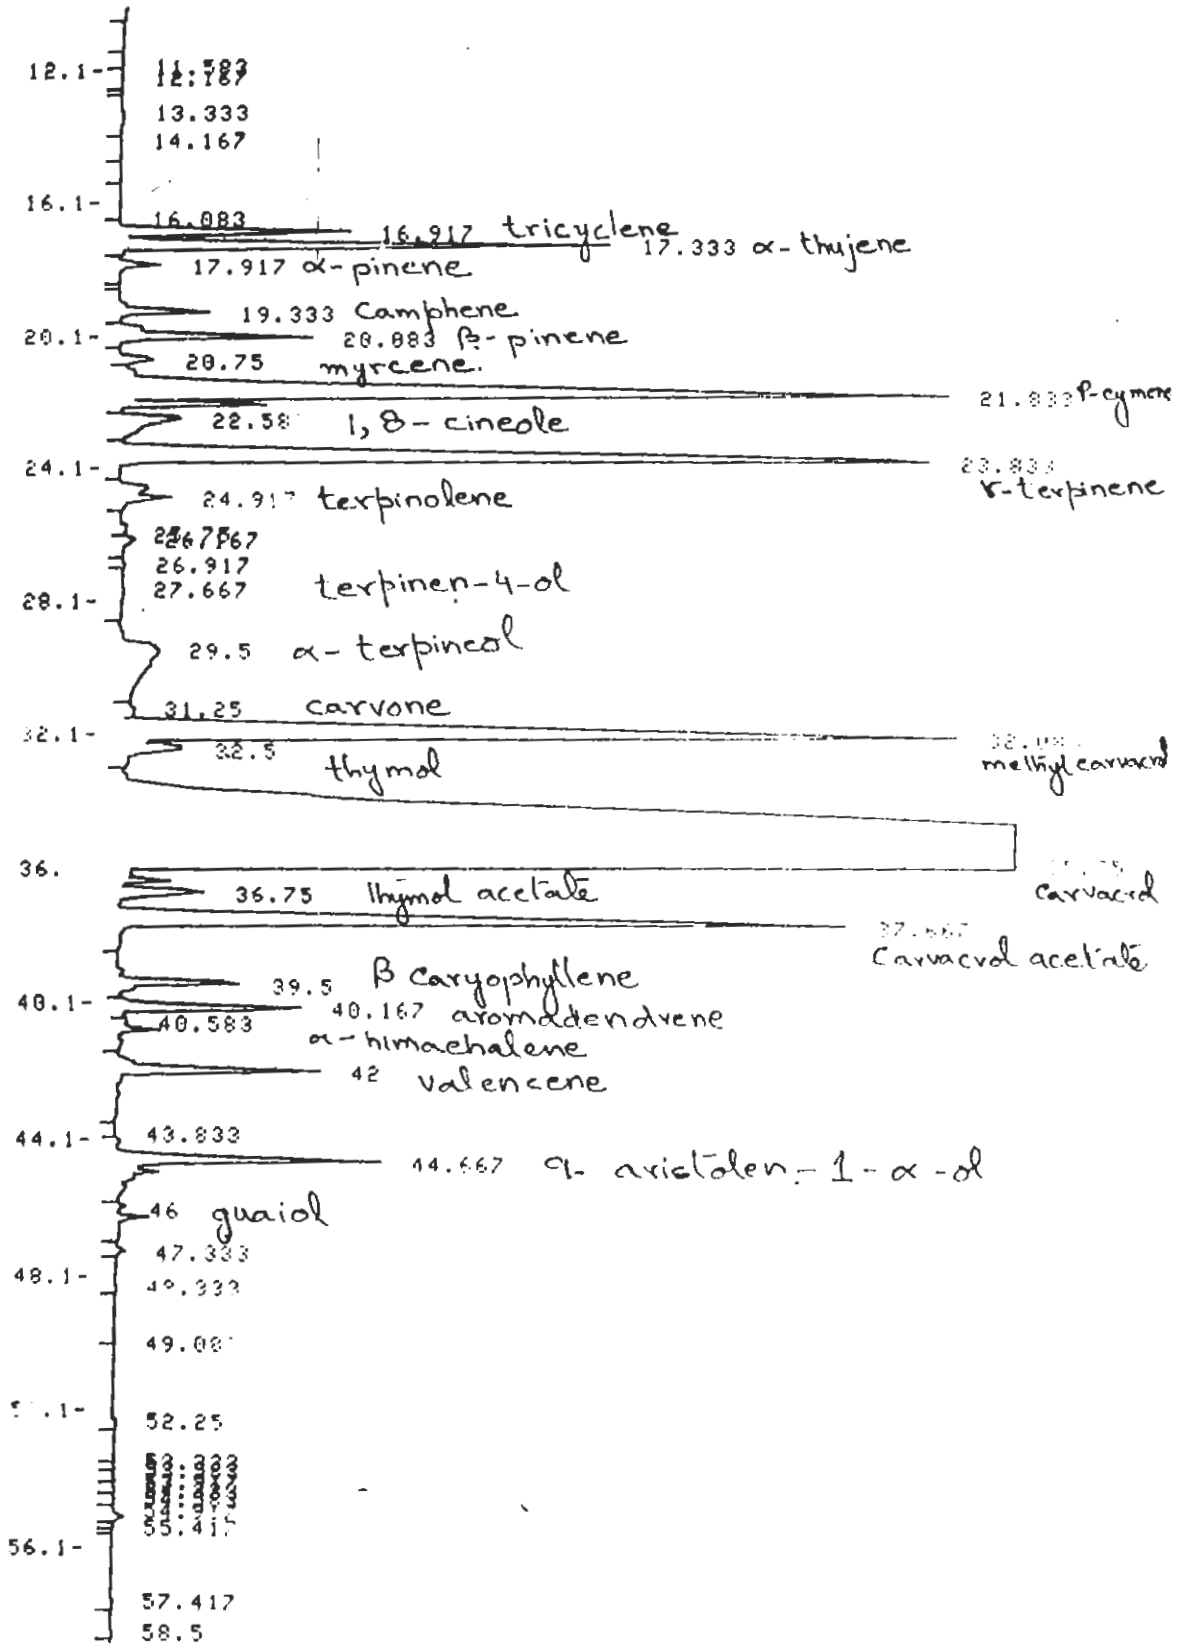 12.1-
11.583
12.167
13.333
14.167
16.1-
16.083
16.917 tricyclene
17.333 α-thujene
17.917 α-pinene
19.333 Camphene
20.1-
20.083 β-pinene
20.75 myrcene.
21.833 P-cymene
22.58 1,8-cineole
24.1-
23.833
γ-terpinene
24.917 terpinolene
26.917
27.667 terpinen-4-ol
28.1-
29.5 α-terpineol
31.25 carvone
32.1-
methyl carvacrol
32.5 thymol
36.
carvacrol
36.75 thymol acetate
37.667
Carvacrol acetate
39.5 β caryophyllene
40.1-
40.167 aromadendrene
40.583 α-himachalene
42 valencene
44.1-
43.833
44.667 9-aristolen-1-α-ol
46 guaiol
47.333
48.1-
48.333
49.08
52.25
56.1-
57.417
58.5